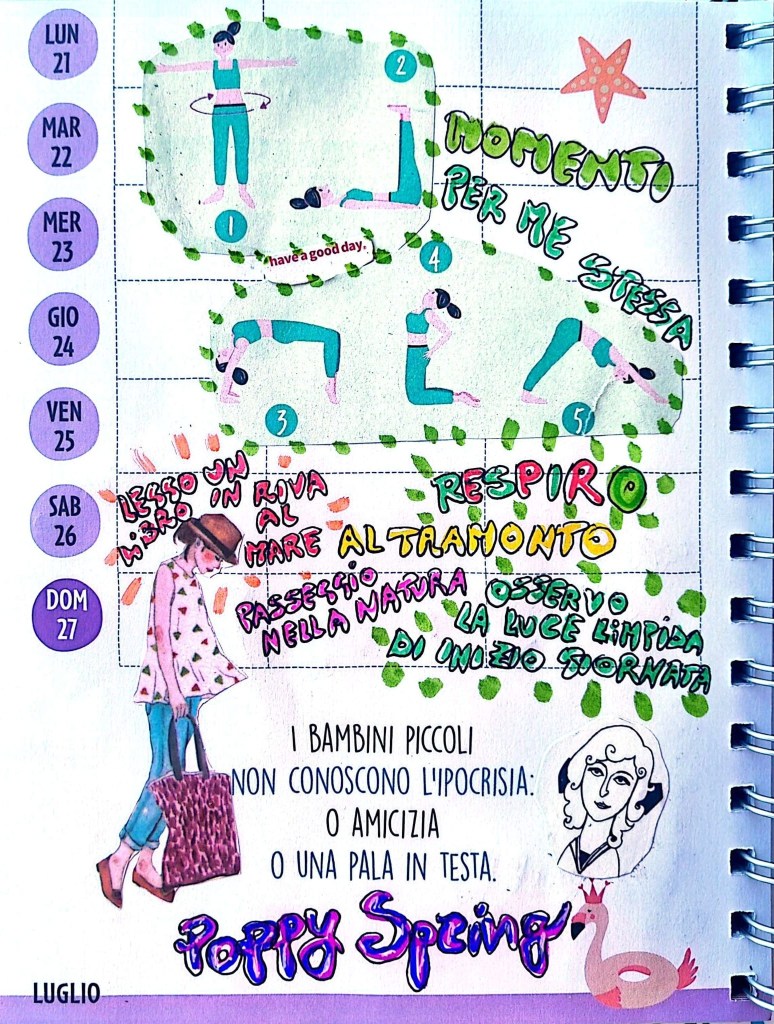 LUN
21
MAR
22
MER
23
GIO
24
VEN
25
SAB
26
DOM
27
1
2
have a good day.
3
4
5
MOMENTI
PER ME STESSA
LEGGO UN
LIBRO IN RIVA
AL
MARE
RESPIRO
AL TRAMONTO
PASSEGGIO
NELLA NATURA
OSSERVO
LA LUCE LIMPIDA
DI INIZIO GIORNATA
I BAMBINI PICCOLI
NON CONOSCONO L'IPOCRISIA:
O AMICIZIA
O UNA PALA IN TESTA.
Poppy Spring
LUGLIO